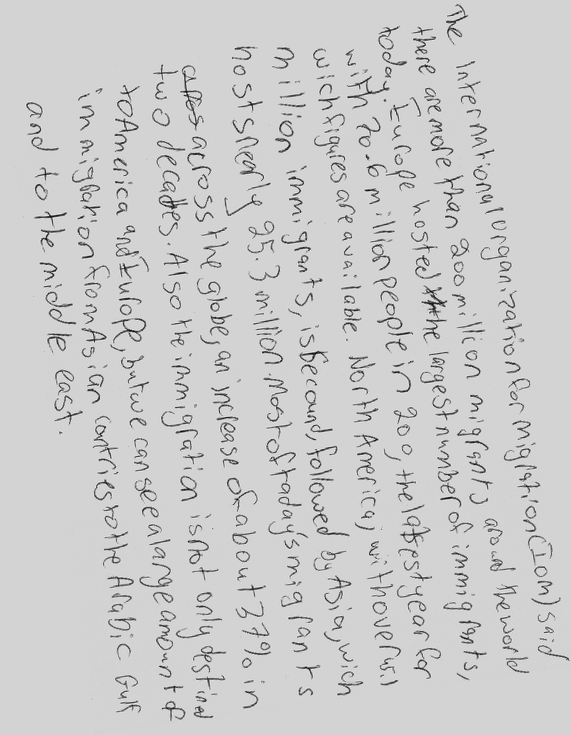 The International organization for migration (Iom) said
there are more than 200 million migrants around the world
today. Europe hosted the largest number of immigrants,
with 70.6 million people in 200, the latest year for
wich figures are available. North America, with over
million immigrants, is second, followed by Asia, wich
hosts nearly 25.3 million. Most of taday's migrants
across the globe, an increase of about 37% in
two decades. Also the immigration is not only destined
to America and Europe, but we can see a lange amount of
immigration from Asian contries to the Arabic Gulf
and to the middle east.